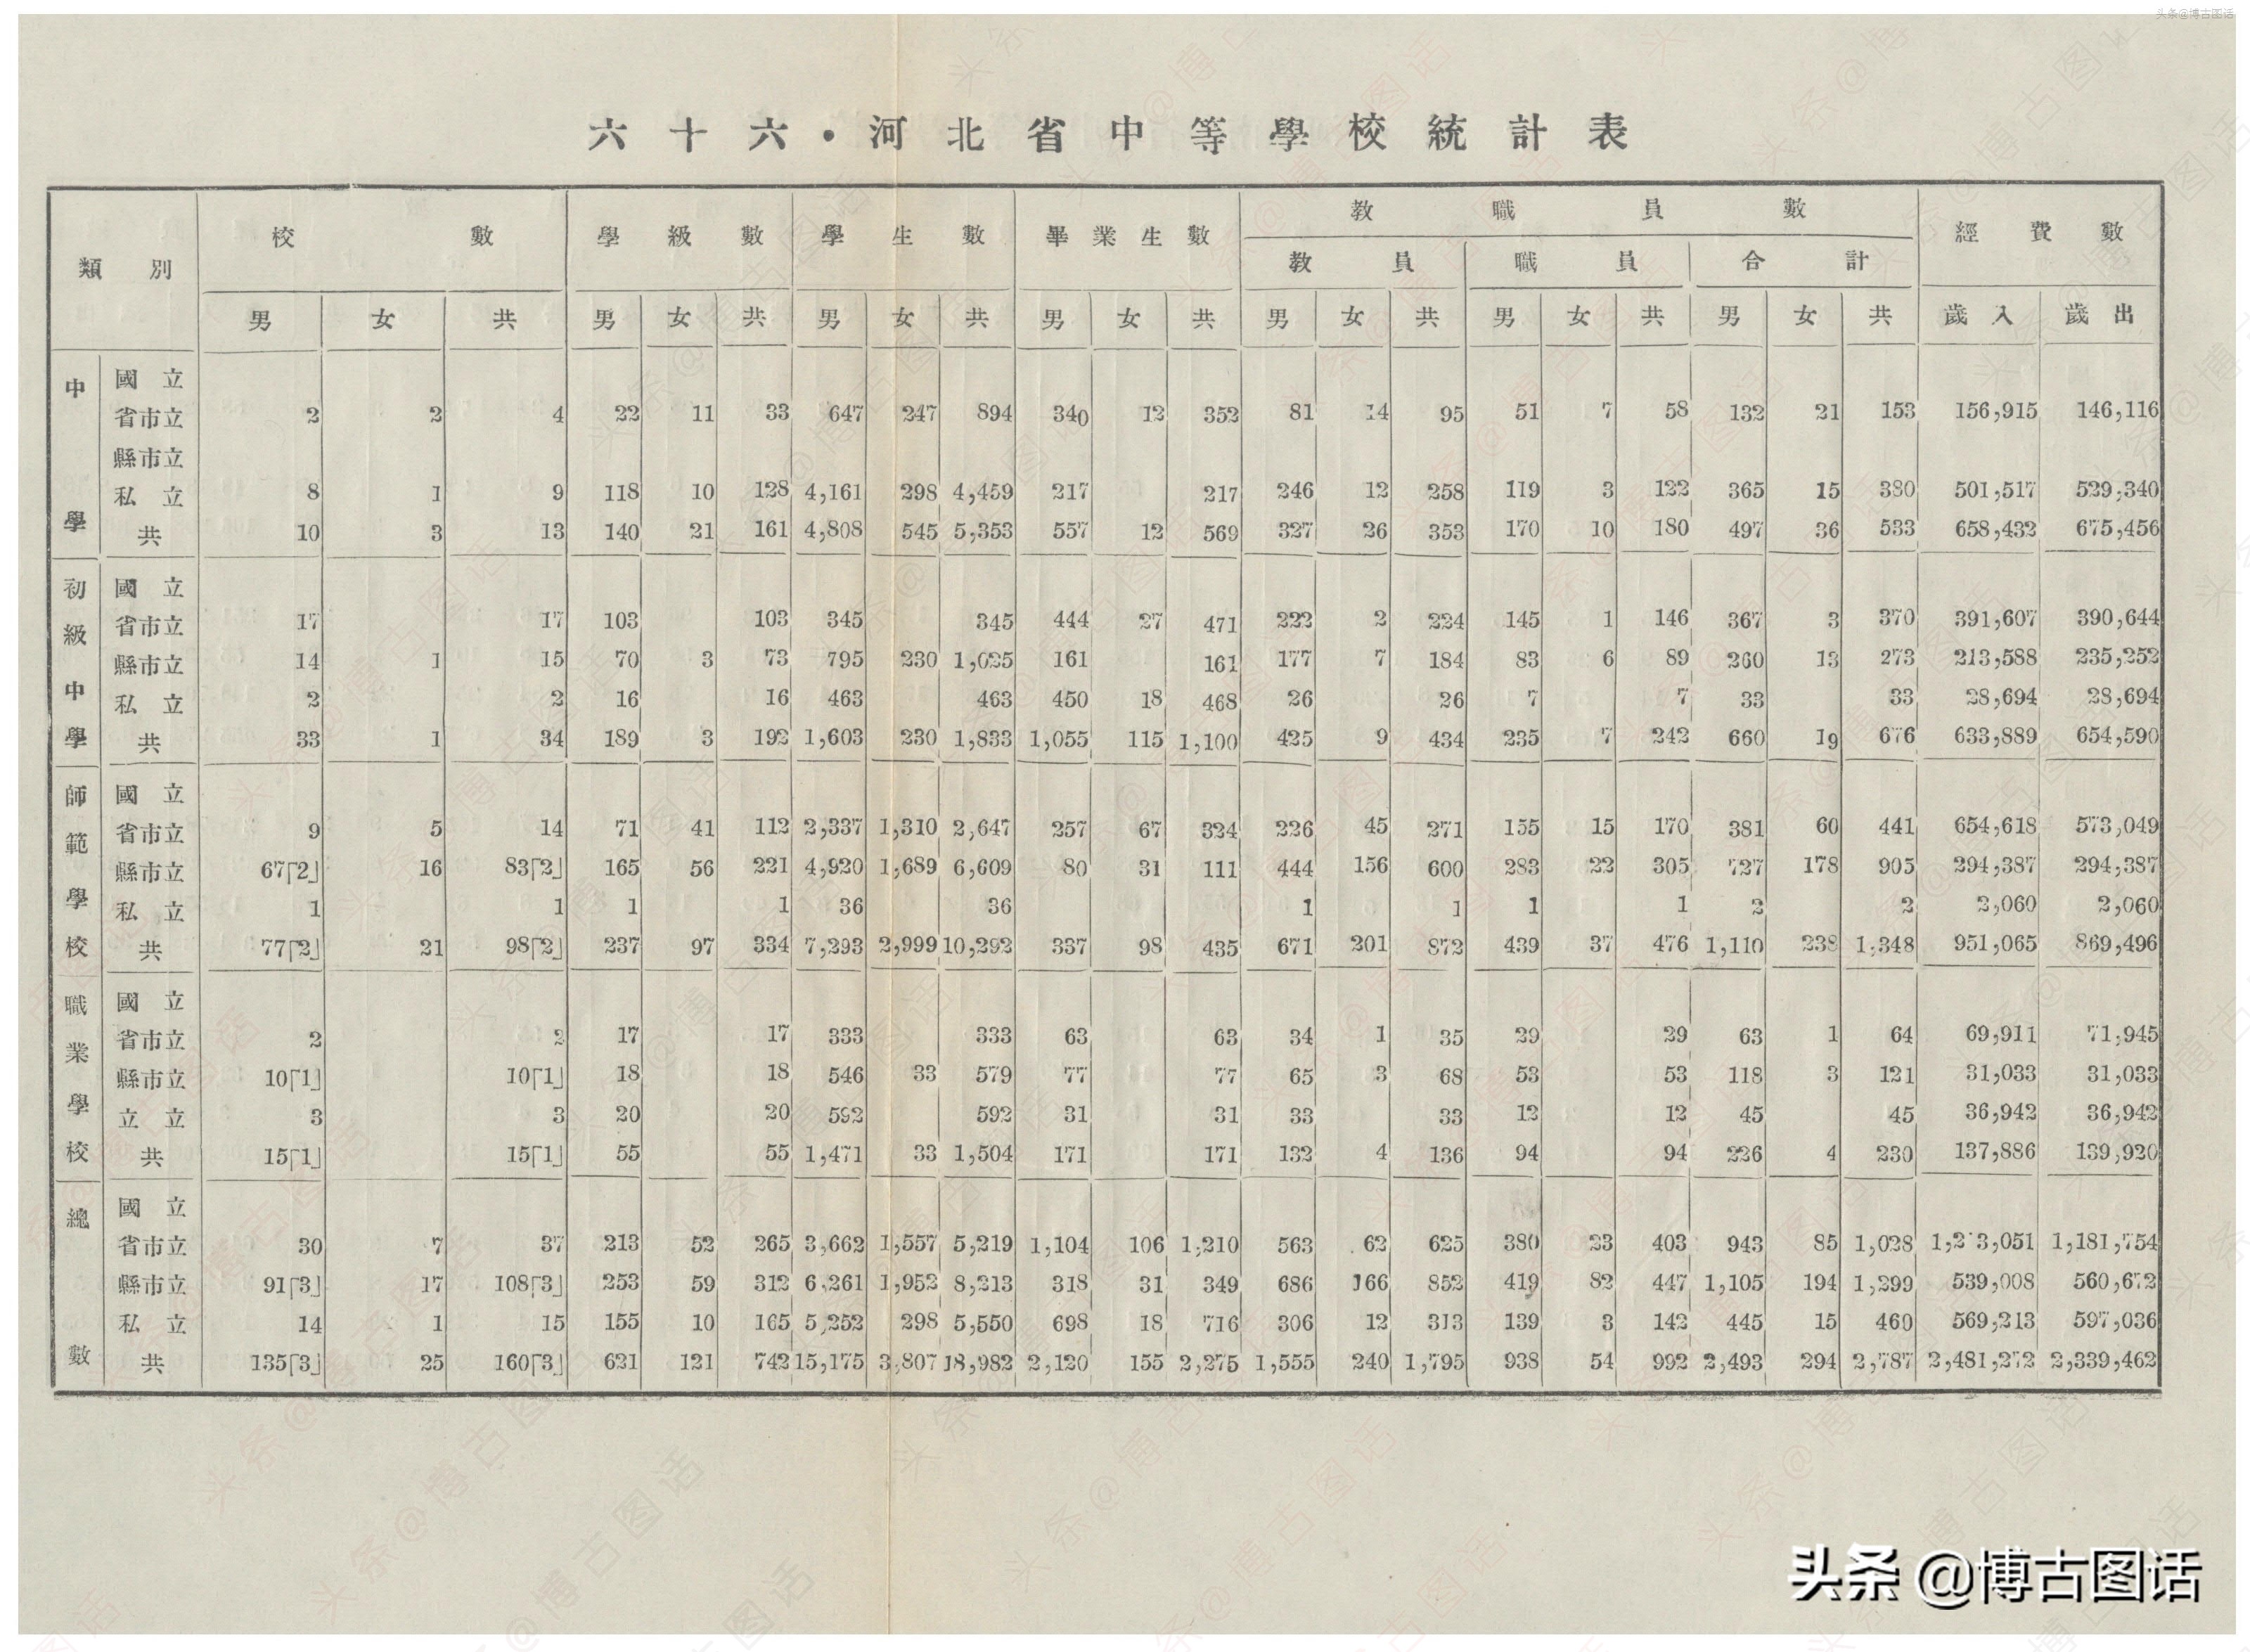 头条@博古图话
六十六·河北省中等學校統計表
類別 校數 學級數 學生數 畢業生數 教職員數 經費數
教員 職員 合計
男 女 共 男 女 共 男 女 共 男 女 共 男 女 共 男 女 共 男 女 共 歲入 歲出
中學
國立
省市立 2 2 4 22 11 33 647 247 894 340 12 352 81 14 95 51 7 58 132 21 153 156,915 146,116
縣市立
私立 8 1 9 118 10 128 4,161 298 4,459 217 217 246 12 258 119 3 122 365 15 380 501,517 529,340
共 10 3 13 140 21 161 4,808 545 5,353 557 12 569 327 26 353 170 10 180 497 36 533 658,432 675,456
初級中學
國立
省市立 17 17 103 103 345 345 444 27 471 222 2 224 145 1 146 367 3 370 391,607 390,644
縣市立 14 1 15 70 3 73 795 230 1,025 161 161 177 7 184 83 6 89 260 13 273 213,588 235,252
私立 2 2 16 16 463 463 450 18 468 26 26 7 7 33 33 28,694 28,694
共 33 1 34 189 3 192 1,603 230 1,833 1,055 115 1,100 425 9 434 235 7 242 660 19 676 633,889 654,590
師範學校
國立
省市立 9 5 14 71 41 112 2,337 1,310 2,647 257 67 324 226 45 271 155 15 170 381 60 441 654,618 573,049
縣市立 67「2」 16 83「2」 165 56 221 4,920 1,689 6,609 80 31 111 444 156 600 283 22 305 727 178 905 294,387 294,387
私立 1 1 1 1 36 36 1 1 1 1 2 2 2,060 2,060
共 77「2」 21 98「2」 237 97 334 7,293 2,999 10,292 337 98 435 671 201 872 439 37 476 1,110 238 1,348 951,065 869,496
職業學校
國立
省市立 2 2 17 17 333 333 63 63 34 1 35 29 29 63 1 64 69,911 71,945
縣市立 10「1」 10「1」 18 18 546 33 579 77 77 65 3 68 53 53 118 3 121 31,033 31,033
立立 3 3 20 20 592 592 31 31 33 33 12 12 45 45 36,942 36,942
共 15「1」 15「1」 55 55 1,471 33 1,504 171 171 132 4 136 94 94 226 4 230 137,886 139,920
總數
國立
省市立 30 7 37 213 52 265 3,662 1,557 5,219 1,104 106 1,210 563 62 625 380 23 403 943 85 1,028 1,181,754
縣市立 91「3」 17 108「3」 253 59 312 6,261 1,952 8,213 318 31 349 686 166 852 419 82 447 1,105 194 1,299 539,008 560,672
私立 14 1 15 155 10 165 5,252 298 5,550 698 18 716 306 12 313 139 3 142 445 15 460 569,213 597,036
共 135「3」 25 160「3」 621 121 742 15,175 3,807 18,982 2,120 155 2,275 1,555 240 1,795 938 54 992 2,493 294 2,787 2,481,272 2,339,462
头条 @博古图话